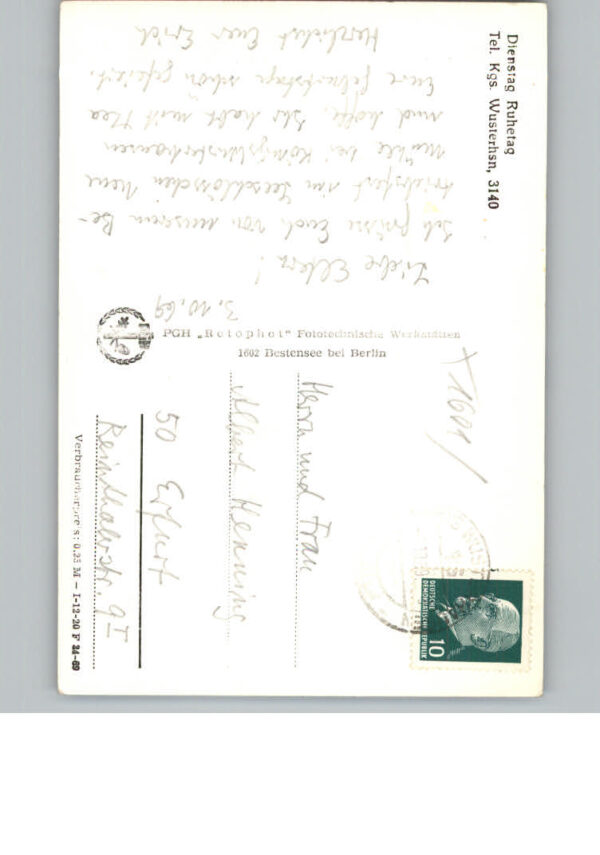 Dienstag Ruhetag
Tel. Kgs. Wusterhsn. 3140
3.10.69
Liebe Eltern!
Ich grüße Euch von unserem Be-
triebsfest im Seeschlösschen Neue
Mühle bei Königswusterhausen
und hoffe, Ihr habt mit Thea
Eure Geburtstage schön gefeiert.
Herzlichst Euer Erich
PGH „Rotophot" Fototechnische Werkstätten
1602 Bestensee bei Berlin
X 1601/
DEUTSCHE
DEMOKRATISCHE REPUBLIK
10
Herrn und Frau
Albert Henning
50 Erfurt
Reinthalerstr. 9 I
Verbraucherpreis: 0,25 M — I-12-20 F 24-69